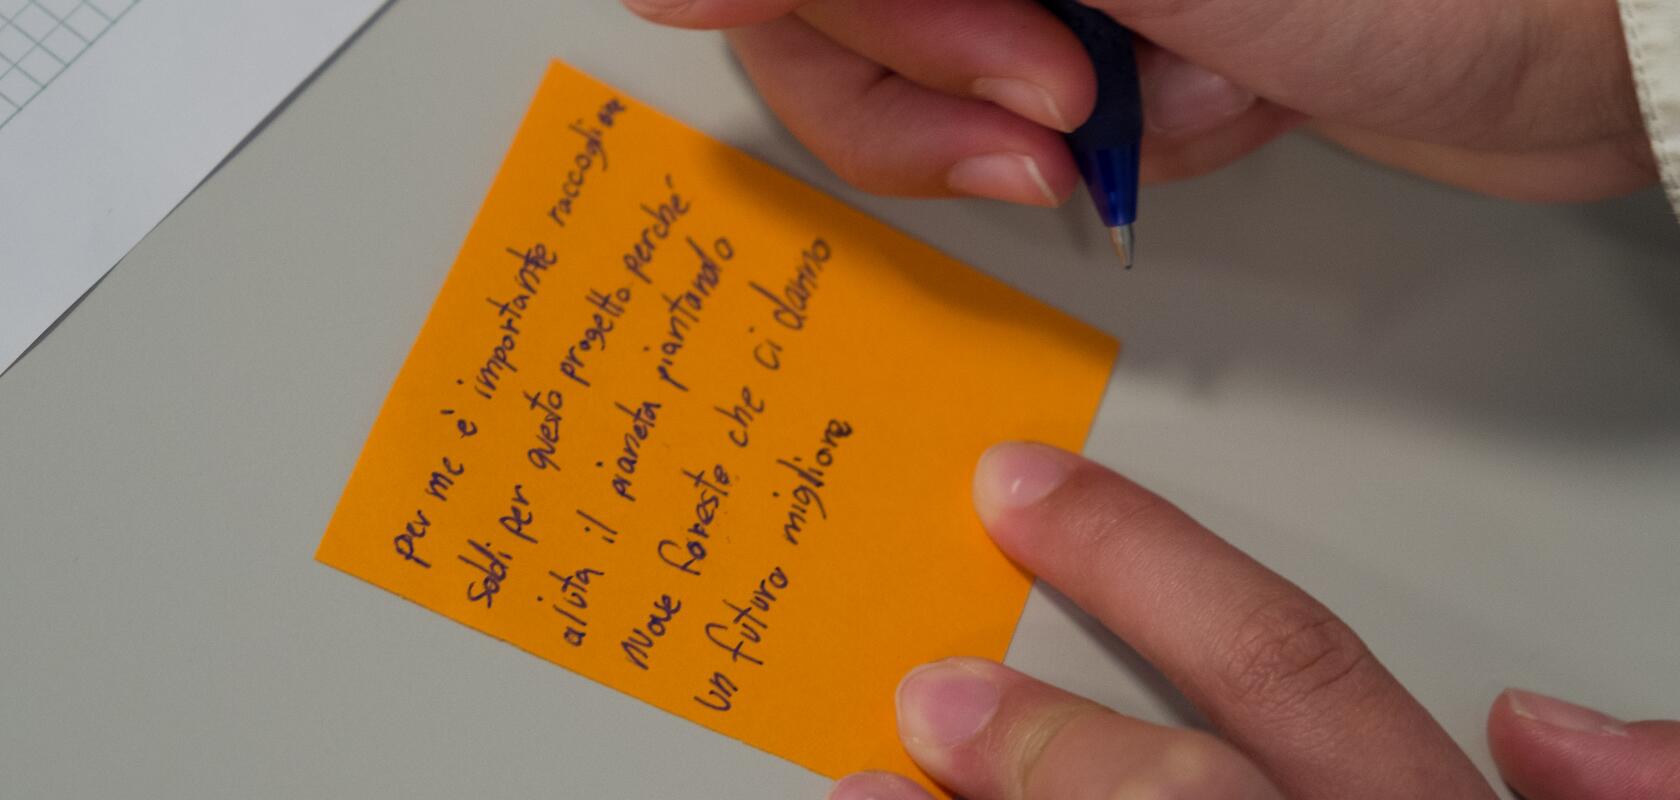 per me è importante raccogliere
soldi per questo progetto perché
aiuta il pianeta piantando
nuove foreste che ci danno
un futuro migliore